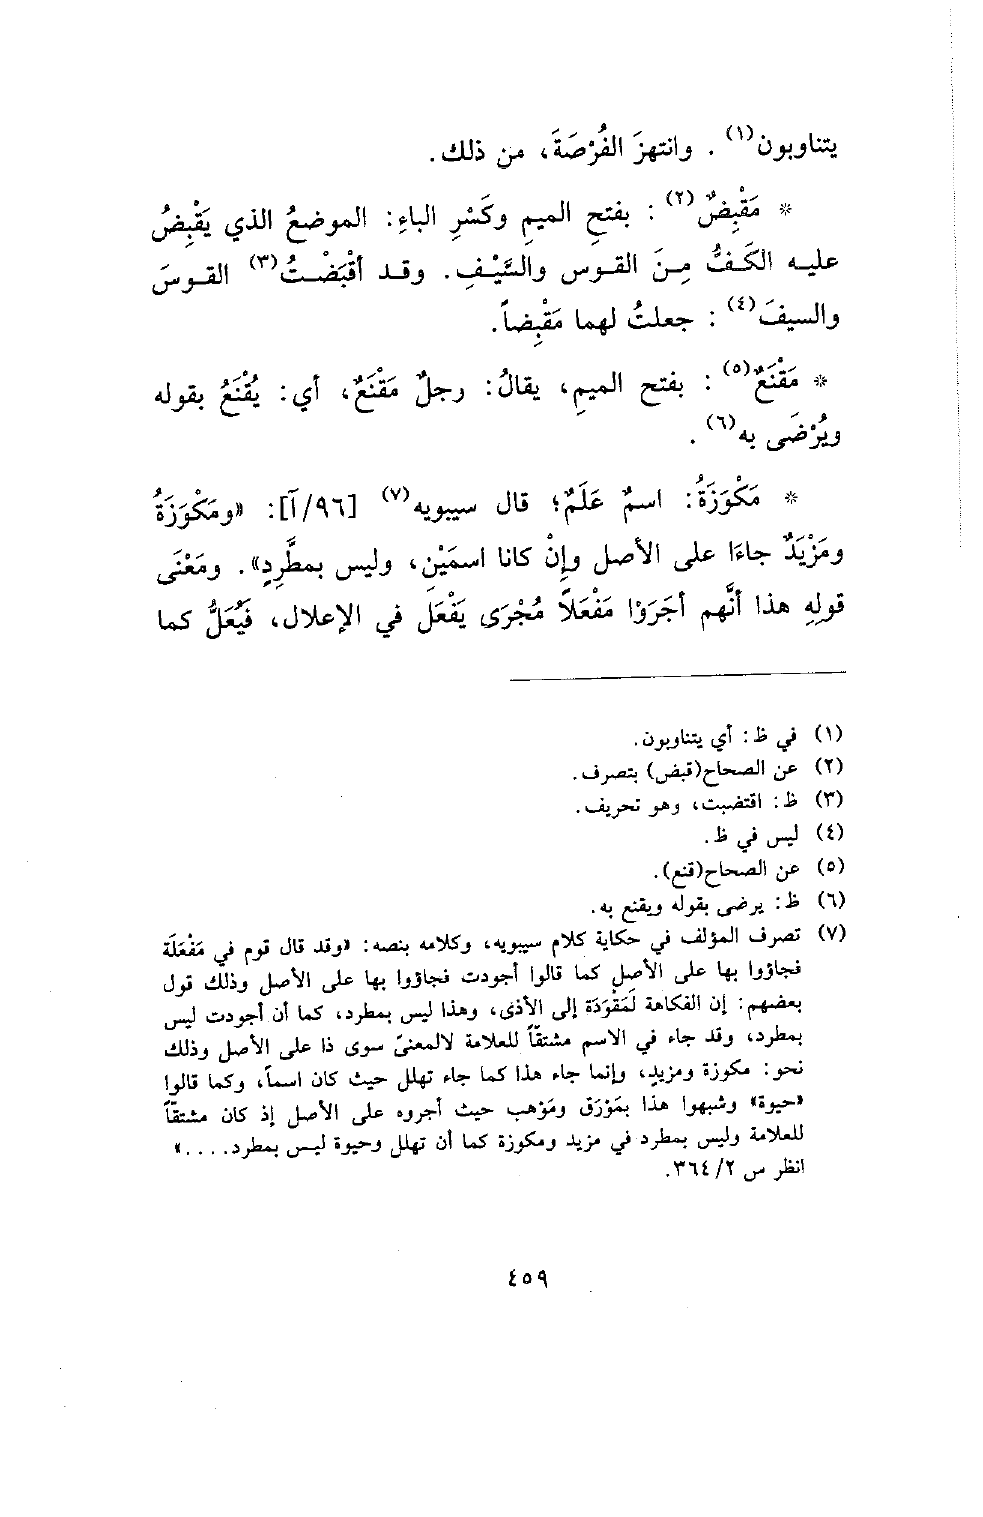 يتناوبون(١) . وانتهزَ الفُرْصَةَ، من ذلك.
* مَقْبِضٌ(٢) : بفتحِ الميمِ وكَسْرِ الباءِ: الموضعُ الذي يَقْبِضُ
عليه الكَفُّ مِنَ القوس والسَّيْفِ. وقد أقْبَضْتُ(٣) القوسَ
والسيفَ(٤) : جعلتُ لهما مَقْبِضاً.
* مَقْنَعٌ(٥) : بفتح الميمِ، يقالُ: رجلٌ مَقْنَعٌ، أي: يُقْنَعُ بقوله
ويُرْضَى به(٦) .
* مَكْوَزَةُ: اسمٌ عَلَمٌ؛ قال سيبويه(٧) [٩٦/آ]: «ومَكْوَزَةُ
ومَزْيَدٌ جاءَا على الأصل وإنْ كانا اسمَيْنِ، وليس بمطَّرِدٍ». ومَعْنَى
قولِهِ هذا أنَّهم أجَرَوْا مَفْعَلاً مُجْرَى يَفْعَل في الإعلال، فَيُعَلُّ كما
(١) في ظ: أي يتناوبون.
(٢) عن الصحاح(قبض) بتصرف.
(٣) ظ: اقتضبت، وهو تحريف.
(٤) ليس في ظ.
(٥) عن الصحاح(قنع).
(٦) ظ: يرضى بقوله ويقنع به.
(٧) تصرف المؤلف في حكاية كلام سيبويه، وكلامه بنصه: «وقد قال قوم في مَفْعَلَة
فجاؤوا بها على الأصل كما قالوا أجودت فجاؤوا بها على الأصل وذلك قول
بعضهم: إن الفكاهة لَمَقْوَدَة إلى الأذى، وهذا ليس بمطرد، كما أن أجودت ليس
بمطرد، وقد جاء في الاسم مشتقّاً للعلامة لالمعنىً سوى ذا على الأصل وذلك
نحو: مكوزة ومزيدٍ، وإنما جاء هذا كما جاء تهلل حيث كان اسماً، وكما قالوا
«حيوة» وشبهوا هذا بمَوْرَق ومَوْهب حيث أجروه على الأصل إذ كان مشتقّاً
للعلامة وليس بمطرد في مزيد ومكوزة كما أن تهلل وحيوة ليس بمطرد....»
انظر س ٢/ ٣٦٤.
٤٥٩